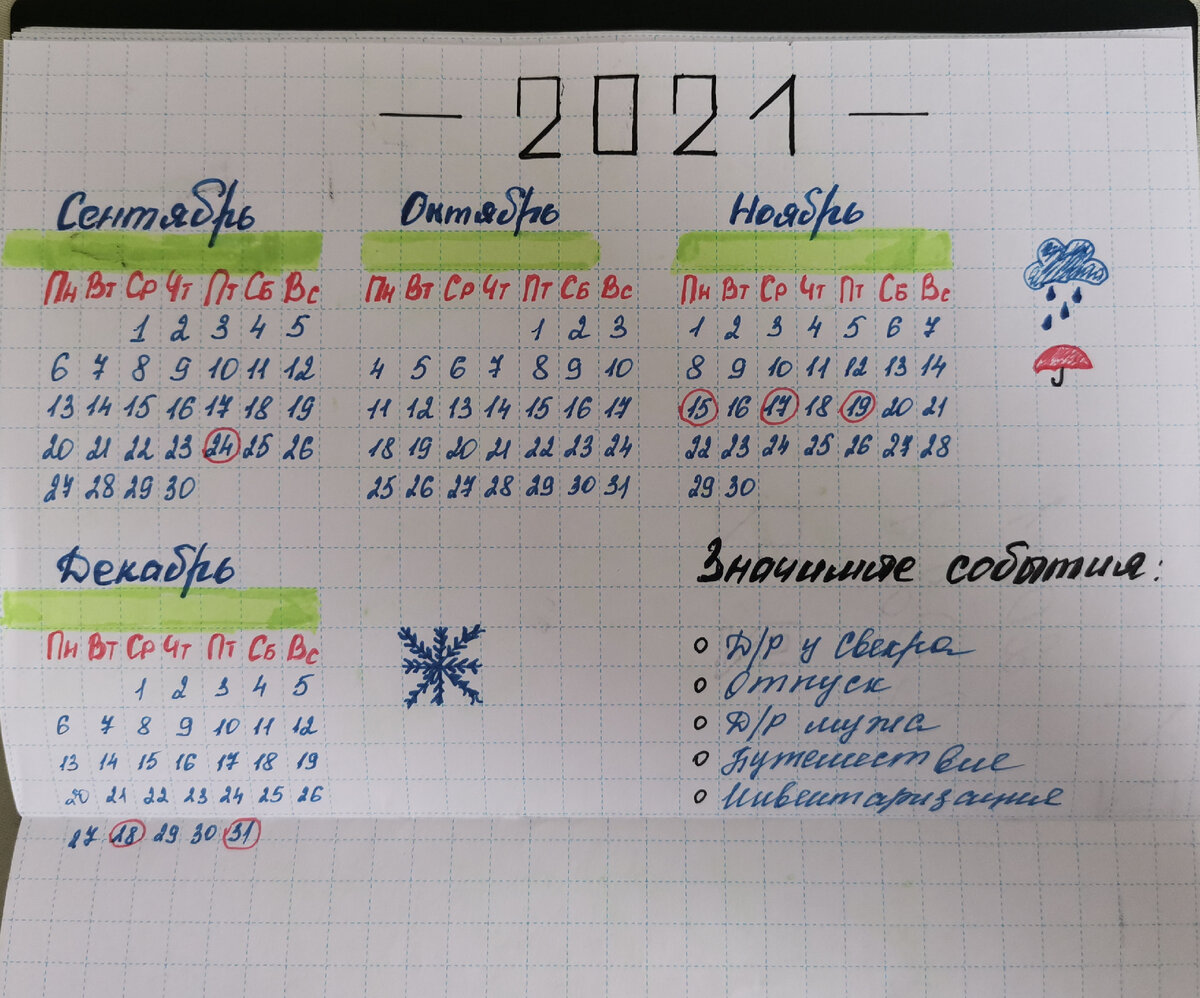 — 2021 —
Сентябрь
Пн Вт Ср Чт Пт Сб Вс
1 2 3 4 5
6 7 8 9 10 11 12
13 14 15 16 17 18 19
20 21 22 23 24 25 26
27 28 29 30
Октябрь
Пн Вт Ср Чт Пт Сб Вс
1 2 3
4 5 6 7 8 9 10
11 12 13 14 15 16 17
18 19 20 21 22 23 24
25 26 27 28 29 30 31
Ноябрь
Пн Вт Ср Чт Пт Сб Вс
1 2 3 4 5 6 7
8 9 10 11 12 13 14
15 16 17 18 19 20 21
22 23 24 25 26 27 28
29 30
Декабрь
Пн Вт Ср Чт Пт Сб Вс
1 2 3 4 5
6 7 8 9 10 11 12
13 14 15 16 17 18 19
20 21 22 23 24 25 26
27 28 29 30 31
Значимые события:
Д/Р у Свекра
Отпуск
Д/Р мужа
Путешествие
Инвентаризация